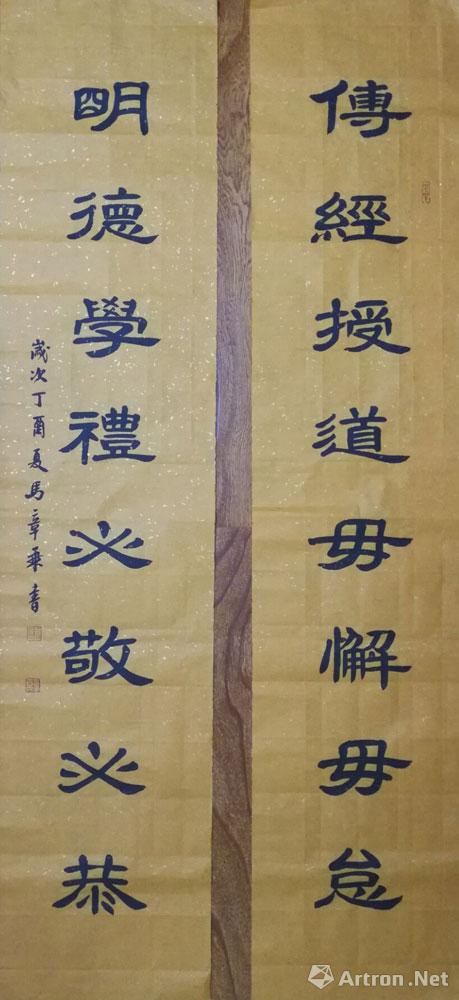 傳經授道毋懈毋怠
明德學禮必敬必恭
歲次丁酉夏馬章乘書
Artron.Net